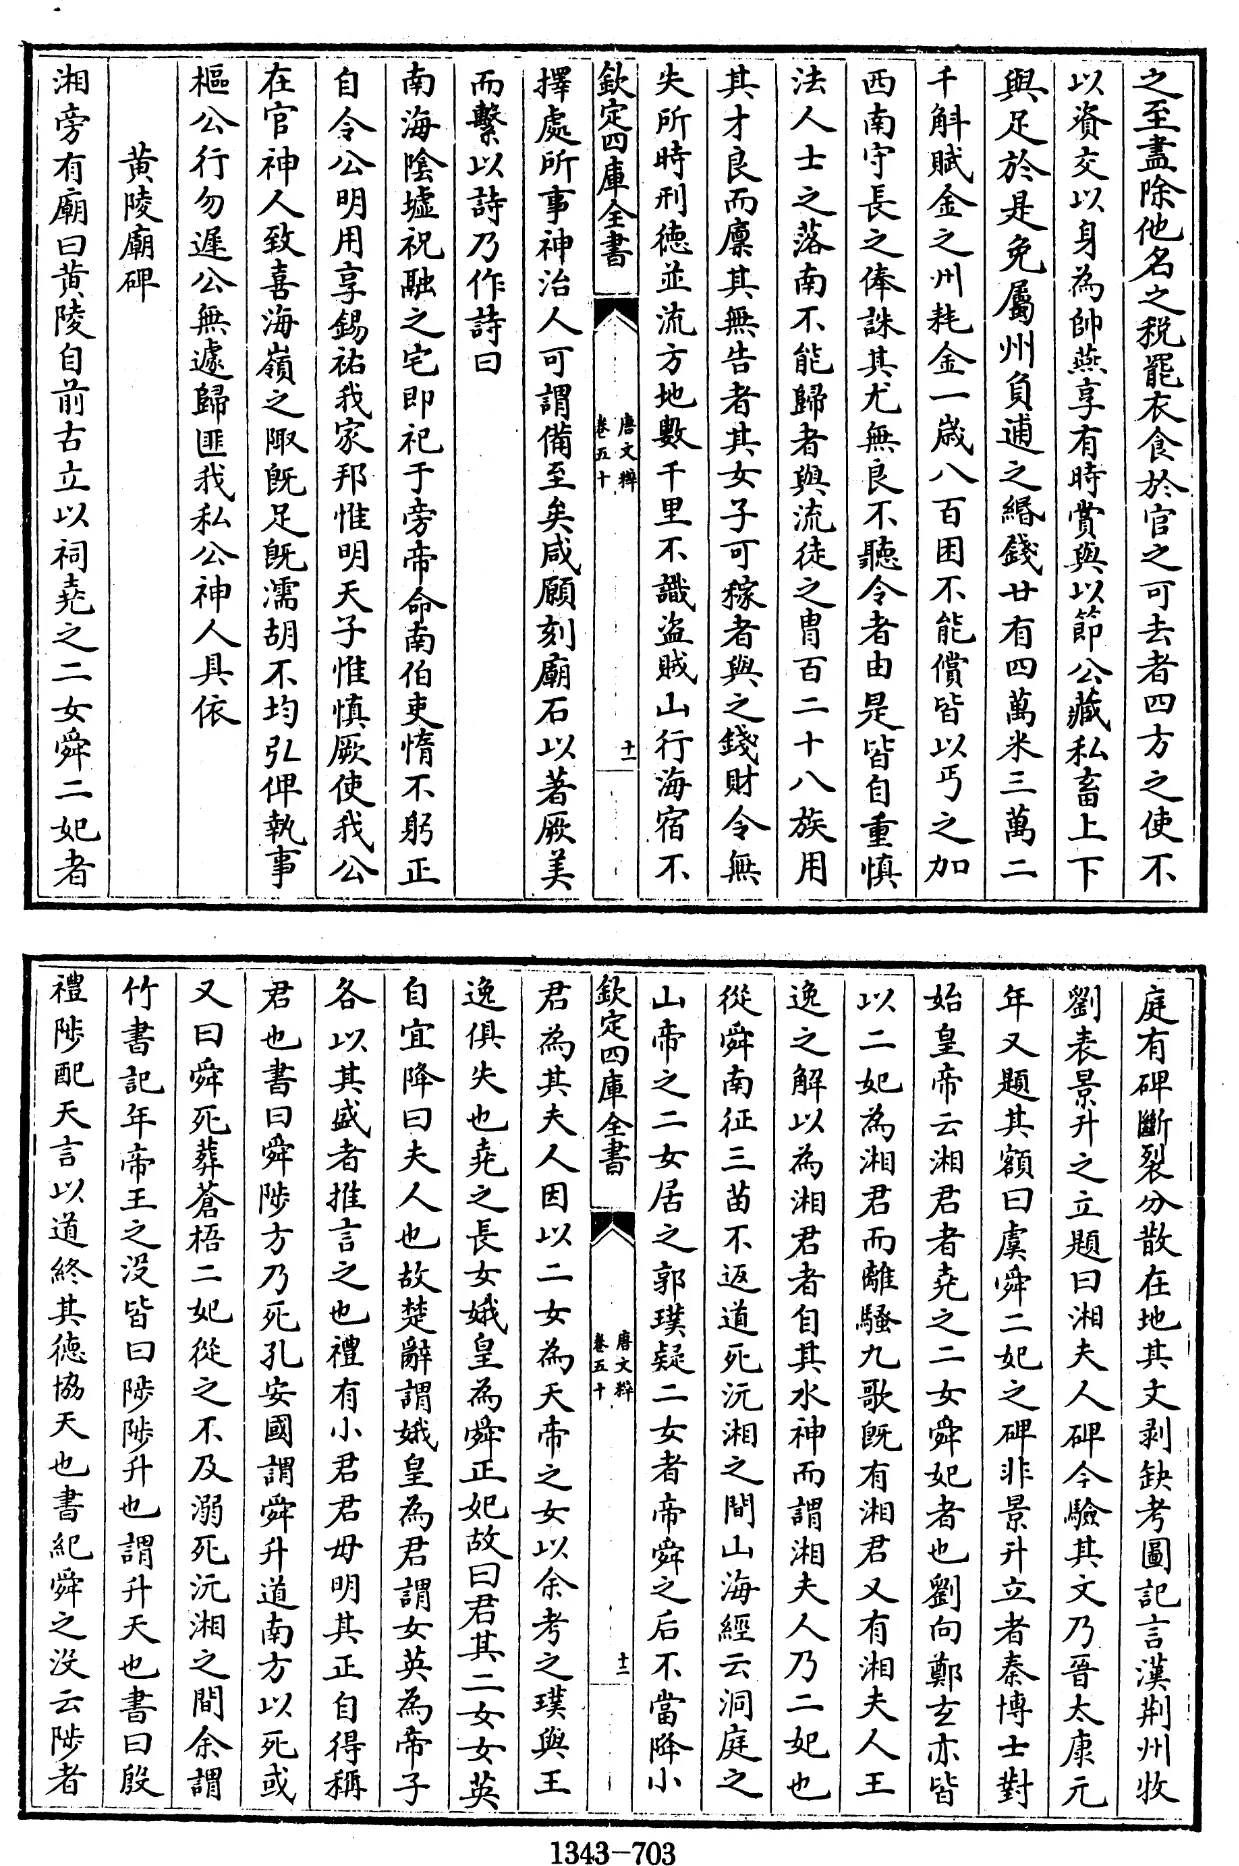 之至盡除他名之税罷衣食於官之可去者四方之使不
以資交以身為帥燕享有時賞與以節公藏私畜上下
與足於是免屬州負逋之緡錢廿有四萬米三萬二
千斛賦金之州耗金一歳八百困不能償皆以丐之加
西南守長之俸誅其尤無良不聽令者由是皆自重慎
法人士之落南不能歸者與流徒之胄百二十八族用
其才良而廪其無告者其女子可稼者與之錢財令無
失所時刑徳並流方地數千里不識盜賊山行海宿不
欽定四庫全書
唐文粹
卷五十
十一
擇處所事神治人可謂備至矣咸願刻廟石以著厥美
而繫以詩乃作詩曰
南海隂墟祝融之宅即祀于旁帝命南伯吏惰不躬正
自令公明用享錫祐我家邦惟明天子惟慎厥使我公
在官神人致喜海嶺之陬既足既濡胡不均弘俾執事
樞公行勿遲公無遽歸匪我私公神人具依
黄陵廟碑
湘旁有廟曰黄陵自前古立以祠堯之二女舜二妃者
庭有碑斷裂分散在地其文剥缺考圖記言漢荆州牧
劉表景升之立題曰湘夫人碑今驗其文乃晉太康元
年又題其額曰虞舜二妃之碑非景升立者秦博士對
始皇帝云湘君者堯之二女舜妃者也劉向鄭玄亦皆
以二妃為湘君而離騷九歌既有湘君又有湘夫人王
逸之解以為湘君者自其水神而謂湘夫人乃二妃也
從舜南征三苗不返道死沅湘之間山海經云洞庭之
山帝之二女居之郭璞疑二女者帝舜之后不當降小
欽定四庫全書
唐文粹
卷五十
十二
君為其夫人因以二女為天帝之女以余考之璞與王
逸俱失也堯之長女娥皇為舜正妃故曰君其二女女英
自宜降曰夫人也故楚辭謂娥皇為君謂女英為帝子
各以其盛者推言之也禮有小君君母明其正自得稱
君也書曰舜陟方乃死孔安國謂舜升道南方以死或
又曰舜死葬蒼梧二妃從之不及溺死沅湘之間余謂
竹書記年帝王之没皆曰陟陟升也謂升天也書曰殷
禮陟配天言以道終其徳協天也書紀舜之没云陟者
1343-703